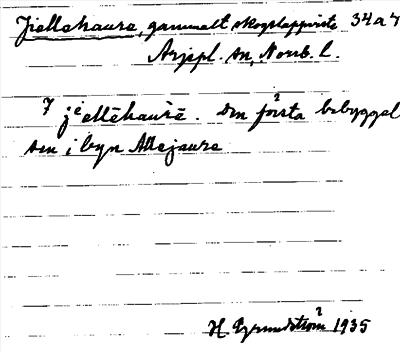 Jiellehaure, gammalt skogslappviste 34a7
Arjepl. sn, Norrb. l.
7 jiellēhaurē. Den första bebyggel
sen i byn Allejaure
H Grundström 1935